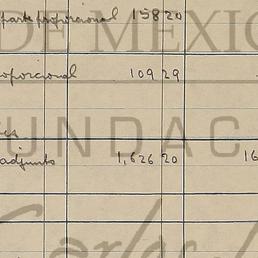 parte proporcional 158 20
DE MEXIC
oporcional 109 29
UNDAC
adjunto 1,626 20 16
Carlos